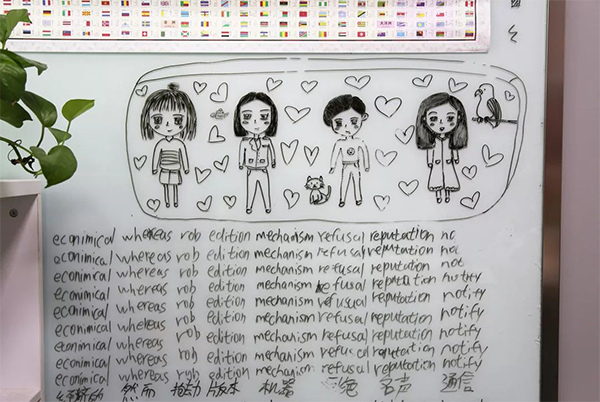 econimical whereas rob edition mechanism refusal reputation no
econimical whereas rob edition mechanism refusal reputation not
econimical whereas rob edition mechanism refusal reputation not
econimical whereas rob edition mechanism refusal reputation notify
econimical whereas rob edition mechanism refusual reputation notify
econimical whereas rob edition mechanism refusal reputation notify
econimical whereas rob edition mechanism refusal reputation notify
econimical whereas rob edition mechanism refusal reputation notify
econimical whereas rob edition mechanism refusal reputation notify
然而 版本 机器 名声 通信